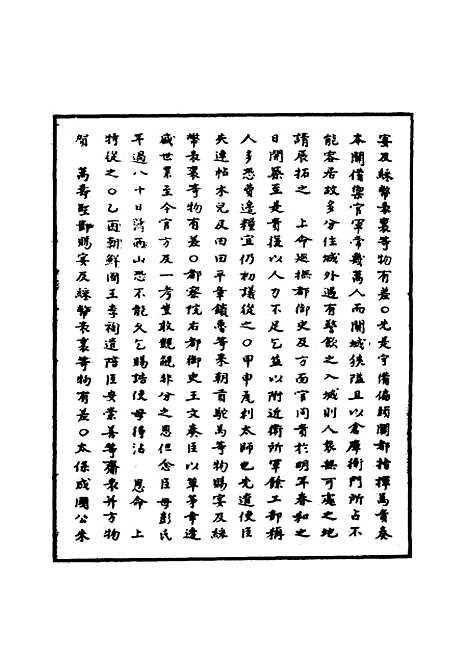 宴及綵幣表裏等物有差○先是守備偏頭關都指揮馬貴奏
本關備禦官軍常幾萬人而關城狹隘且以倉庫衙門所占不
能容居故多分住城外遇有警歛之入城則人畜無可處之地
請展拓之 上命巡撫都御史及方面官同貴於明年春和之
日開築至是貴復以人力不足乞益以附近衛所軍餘工部稱
人多恐費邊糧宜仍初議從之○甲申瓦剌太師也先遣使臣
失連帖木兒及回回平章鎖魯等來朝貢駝馬等物賜宴及綵
幣表裏等物有差○都察院右都御史王文奏臣以草茅幸逢
盛世累至今官方及一考豈敢覬覦非分之恩但念臣母彭氏
年過八十日薄西山恐不能久乞賜誥使母得沾 恩命 上
特從之○乙酉朝鮮國王李祹遣陪臣安崇善等齎表并方物
賀 萬壽聖節賜宴及綵幣表裏等物有差○太保成國公朱